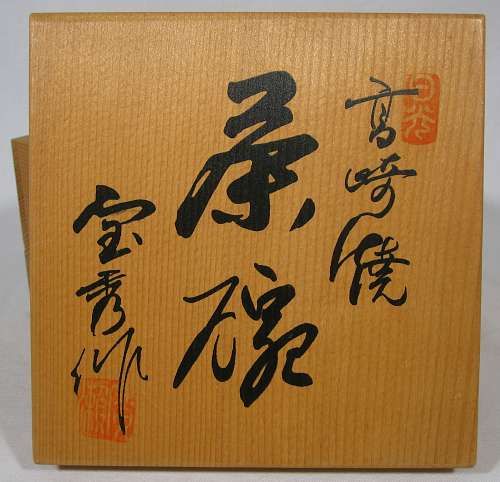 高崎焼
茶碗
宝秀作